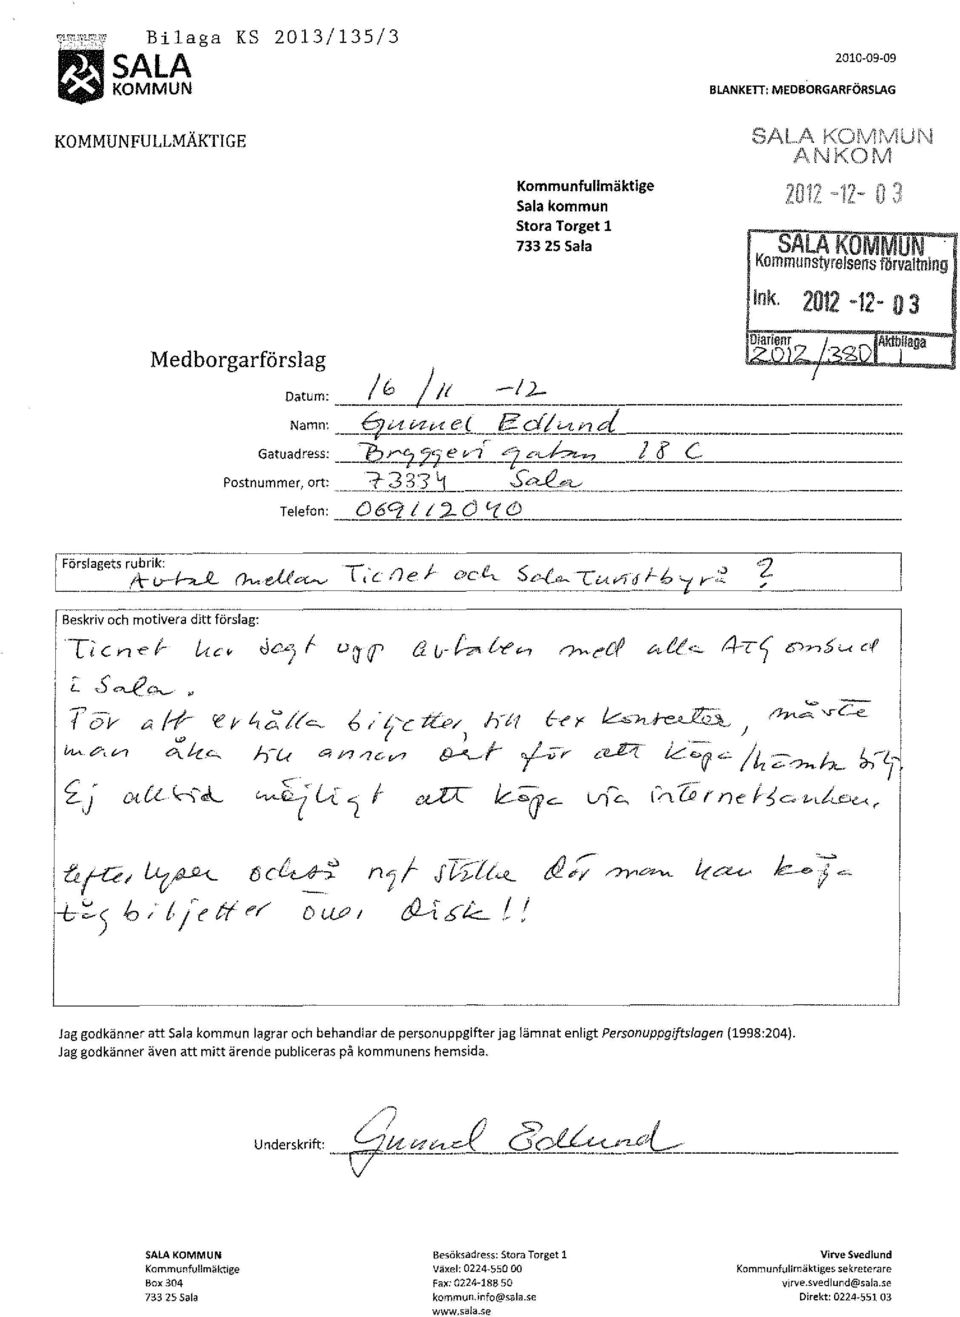 Bilaga KS 2013/135/3
SALA
KOMMUN
2010-09-09
BLANKETT: MEDBORGARFÖRSLAG
KOMMUNFULLMÄKTIGE
SALA KOMMUN
ANKOM
2012 -12- 03
Kommunfullmäktige
Sala kommun
Stora Torget 1
733 25 Sala
SALA KOMMUN
Kommunstyrelsens förvaltning
Ink. 2012 -12- 03
Diarienr Aktbilaga
2012/380 1
Medborgarförslag
Datum: 16/11 -12
Namn: Gunnel Edlund
Gatuadress: Bryggeri gatan 18 C
Postnummer, ort: 73334 Sala
Telefon: 069112040
Förslagets rubrik:
Avtal mellan Ticnet och Sala Turistbyrå ?
Beskriv och motivera ditt förslag:
Ticnet har sagt upp avtalen med alla ATG ombud
i Sala.
För att erhålla biljetter, till tex konserter, måste
man åka till annan ort för att köpa/hämta bilj.
Ej alltid möjligt att köpa via internetbanken.
Efterlyser också ngt ställe där man kan köpa
tågbiljetter över disk!!
Jag godkänner att Sala kommun lagrar och behandlar de personuppgifter jag lämnat enligt Personuppgiftslagen (1998:204).
Jag godkänner även att mitt ärende publiceras på kommunens hemsida.
Underskrift: Gunnel Edlund
SALA KOMMUN
Kommunfullmäktige
Box 304
733 25 Sala
Besöksadress: Stora Torget 1
Växel: 0224-550 00
Fax: 0224-188 50
kommun.info@sala.se
www.sala.se
Virve Svedlund
Kommunfullmäktiges sekreterare
virve.svedlund@sala.se
Direkt: 0224-551 03